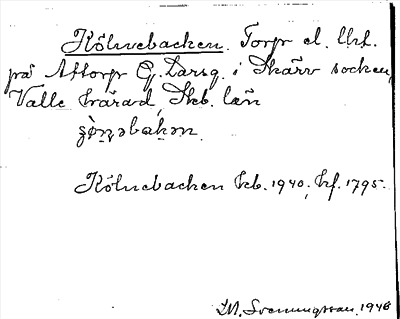 Kölnebacken. Torp el. Uhf.
på Aftorp G. Larsg. i Skärv socken,
Valle härad, Skb. län
Kölnebacken hb. 1940, hf. 1795.
M. Svenungsson 1946